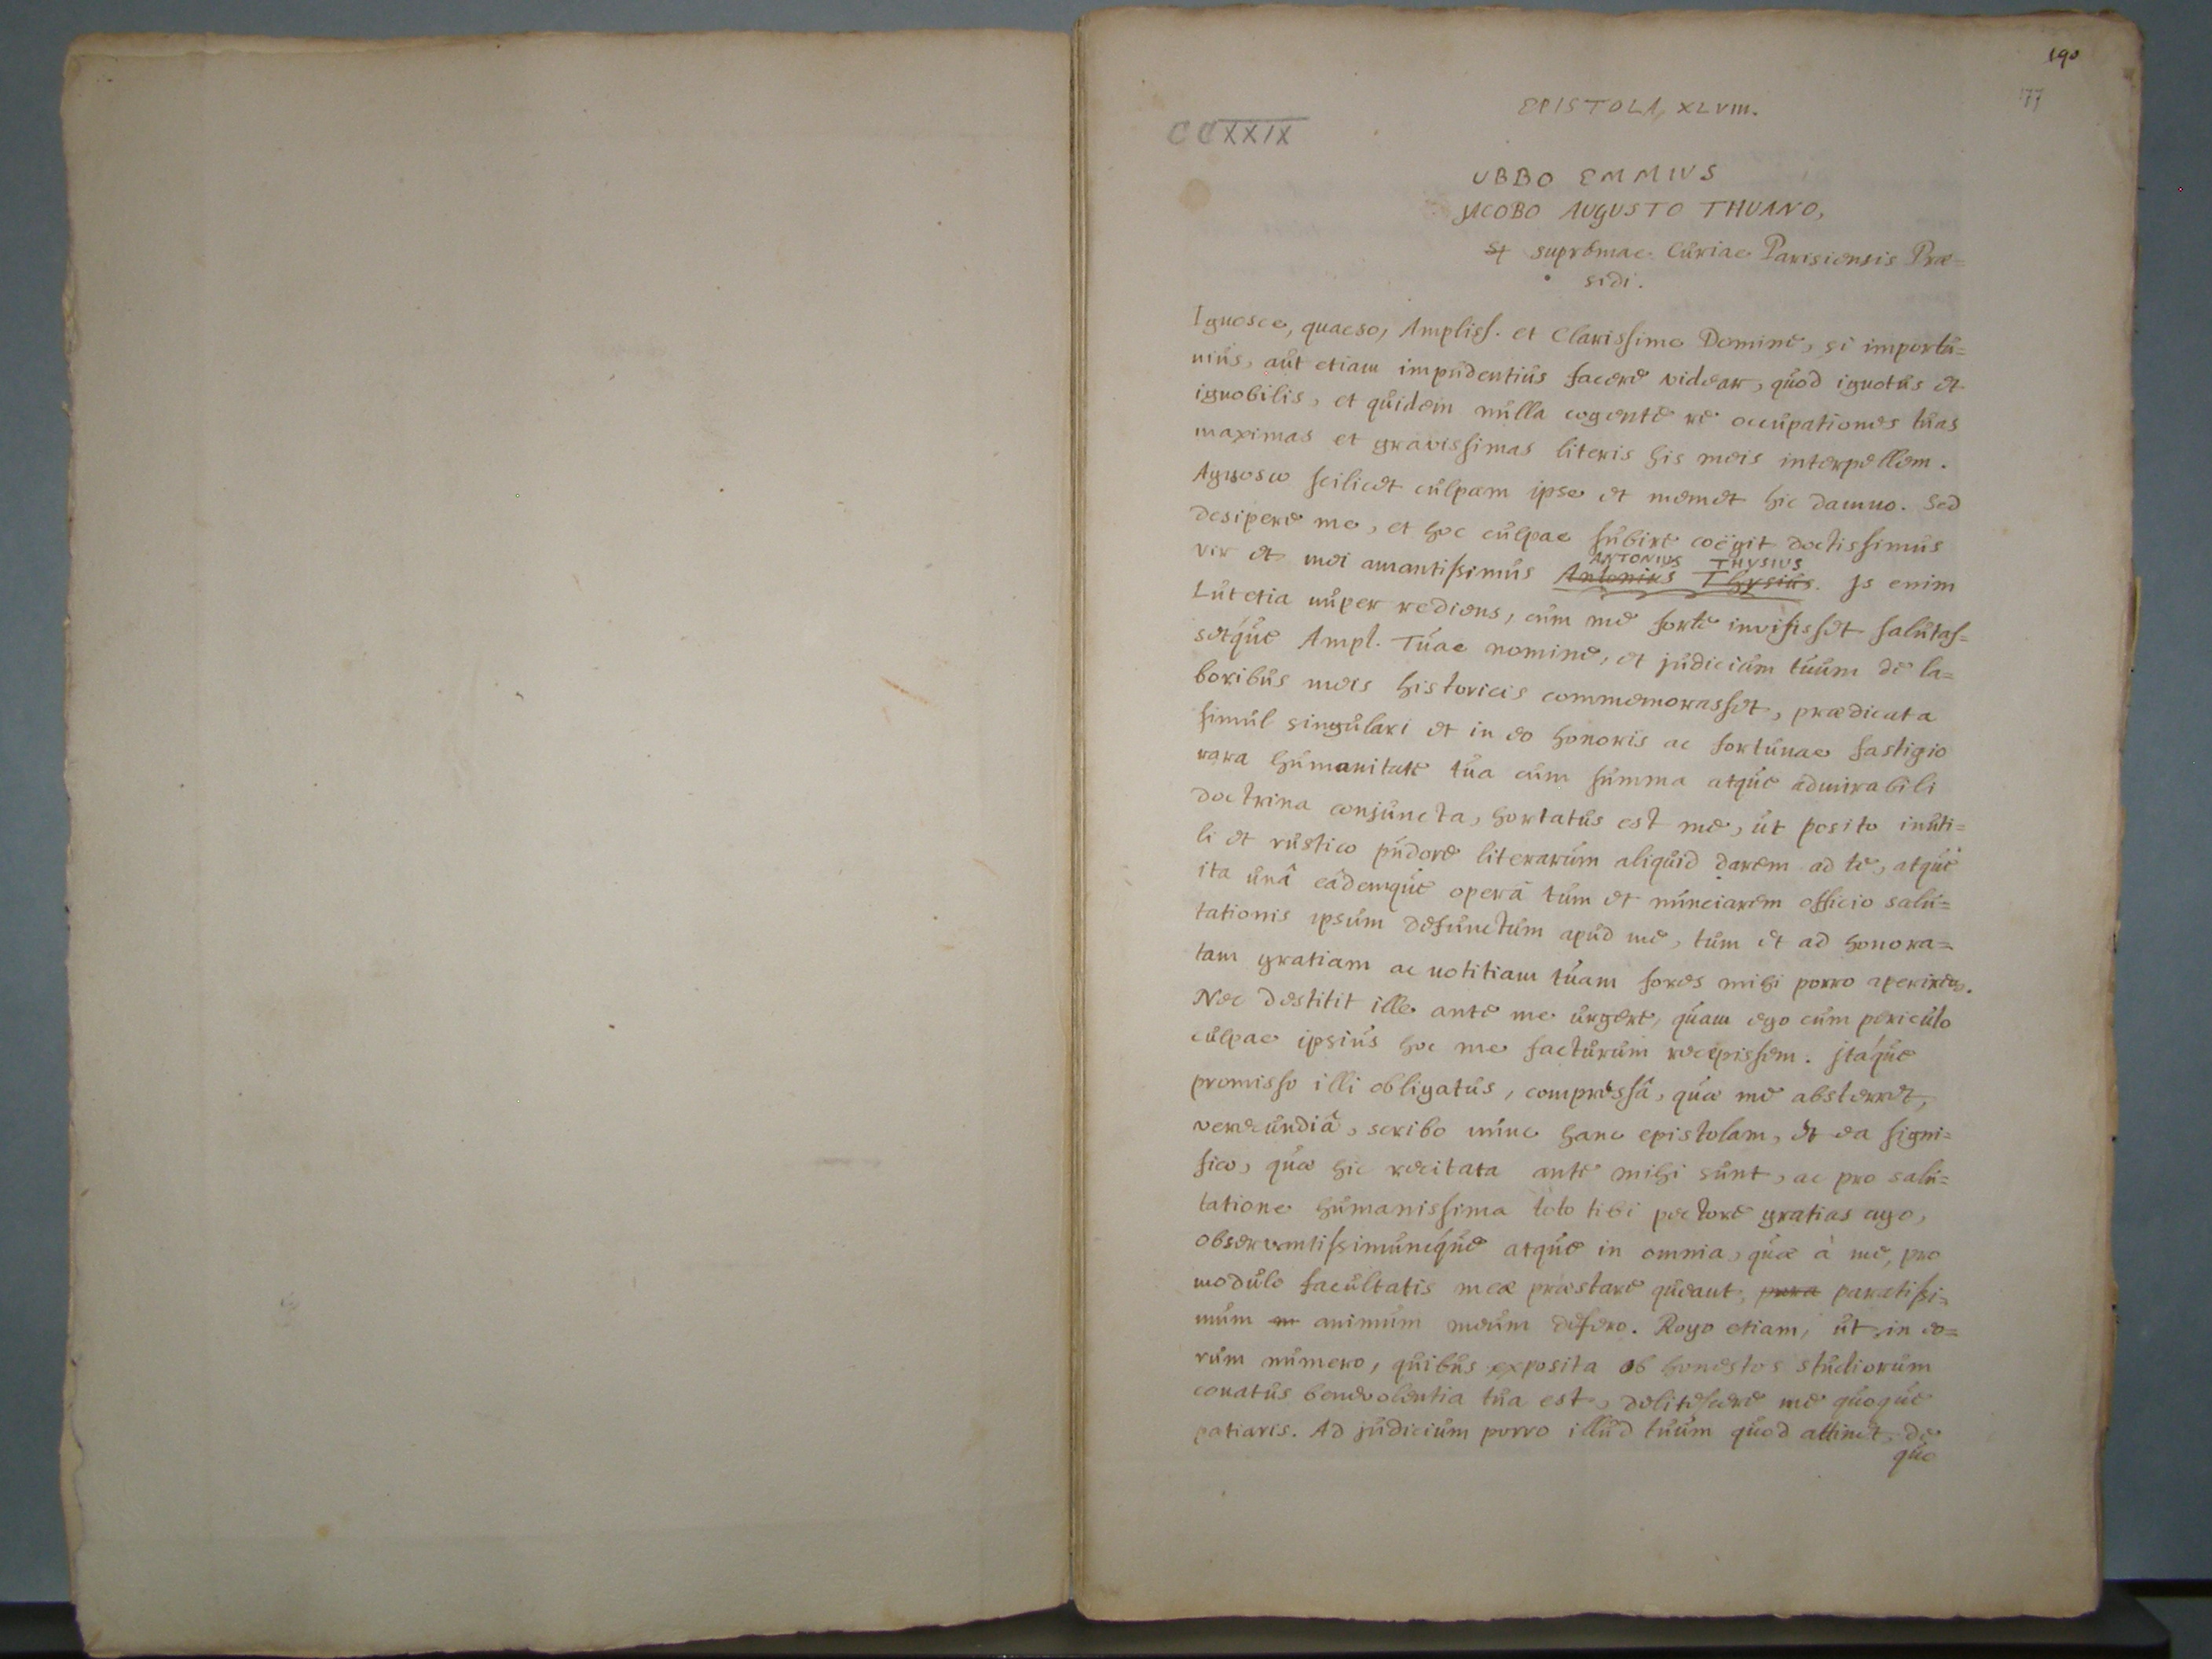 190
177
EPISTOLA, XLVIII.
CCXXIX
UBBO EMMIUS
JACOBO AUGUSTO THUANO,
supremae Curiae Parisiensis Prae=
sidi.
Ignosce, quaeso, Ampliss. et Clarissime Domine, si importu=
nius, aut etiam impudentius facere videar, quod ignotus et
ignobilis, et quidem nulla cogente re occupationes tuas
maximas et gravissimas literis his meis interpellem.
Agnosco scilicet culpam ipse et memet hic damno. Sed
desipere me, et hoc culpae subire coëgit doctissimus
ANTONIUS THYSIUS
vir et mei amantissimus Antonius Thysius. Is enim
Lutetia nuper rediens, cum me forte invisisset salutas=
setque Ampl. Tuae nomine, et judicium tuum de la=
boribus meis historicis commemorasset, praedicata
simul singulari et in eo honoris ac fortunae fastigio
rara humanitate tua cum summa atque admirabili
doctrina conjuncta, hortatus est me, ut posito inuti=
li et rustico pudore literarum aliquid darem ad te, atque
ita unâ eâdemque operâ tum et nunciarem officio salu=
tationis ipsum defunctum apud me, tum et ad honora=
tam gratiam ac notitiam tuam fores mihi porro aperirem.
Nec destitit ille ante me urgere, quam ego cum periculo
culpae ipsius hoc me facturum recepissem. Itaque
promisso illi obligatus, compressâ, quae me absterret,
verecundiâ, scribo nunc hanc epistolam, et ea signi=
fico, quae hic recitata ante mihi sunt, ac pro salu=
tatione humanissima toto tibi pectore gratias ago,
observantissimumque atque in omnia, quae à me, pro
modulo facultatis meae praestare queant, para paratissi=
mum m animum meum defero. Rogo etiam, ut in eo=
rum numero, quibus exposita ob honestos studiorum
conatus benevolentia tua est, delitescere me quoque
patiaris. Ad judicium porro illud tuum quod attinet, de
quo